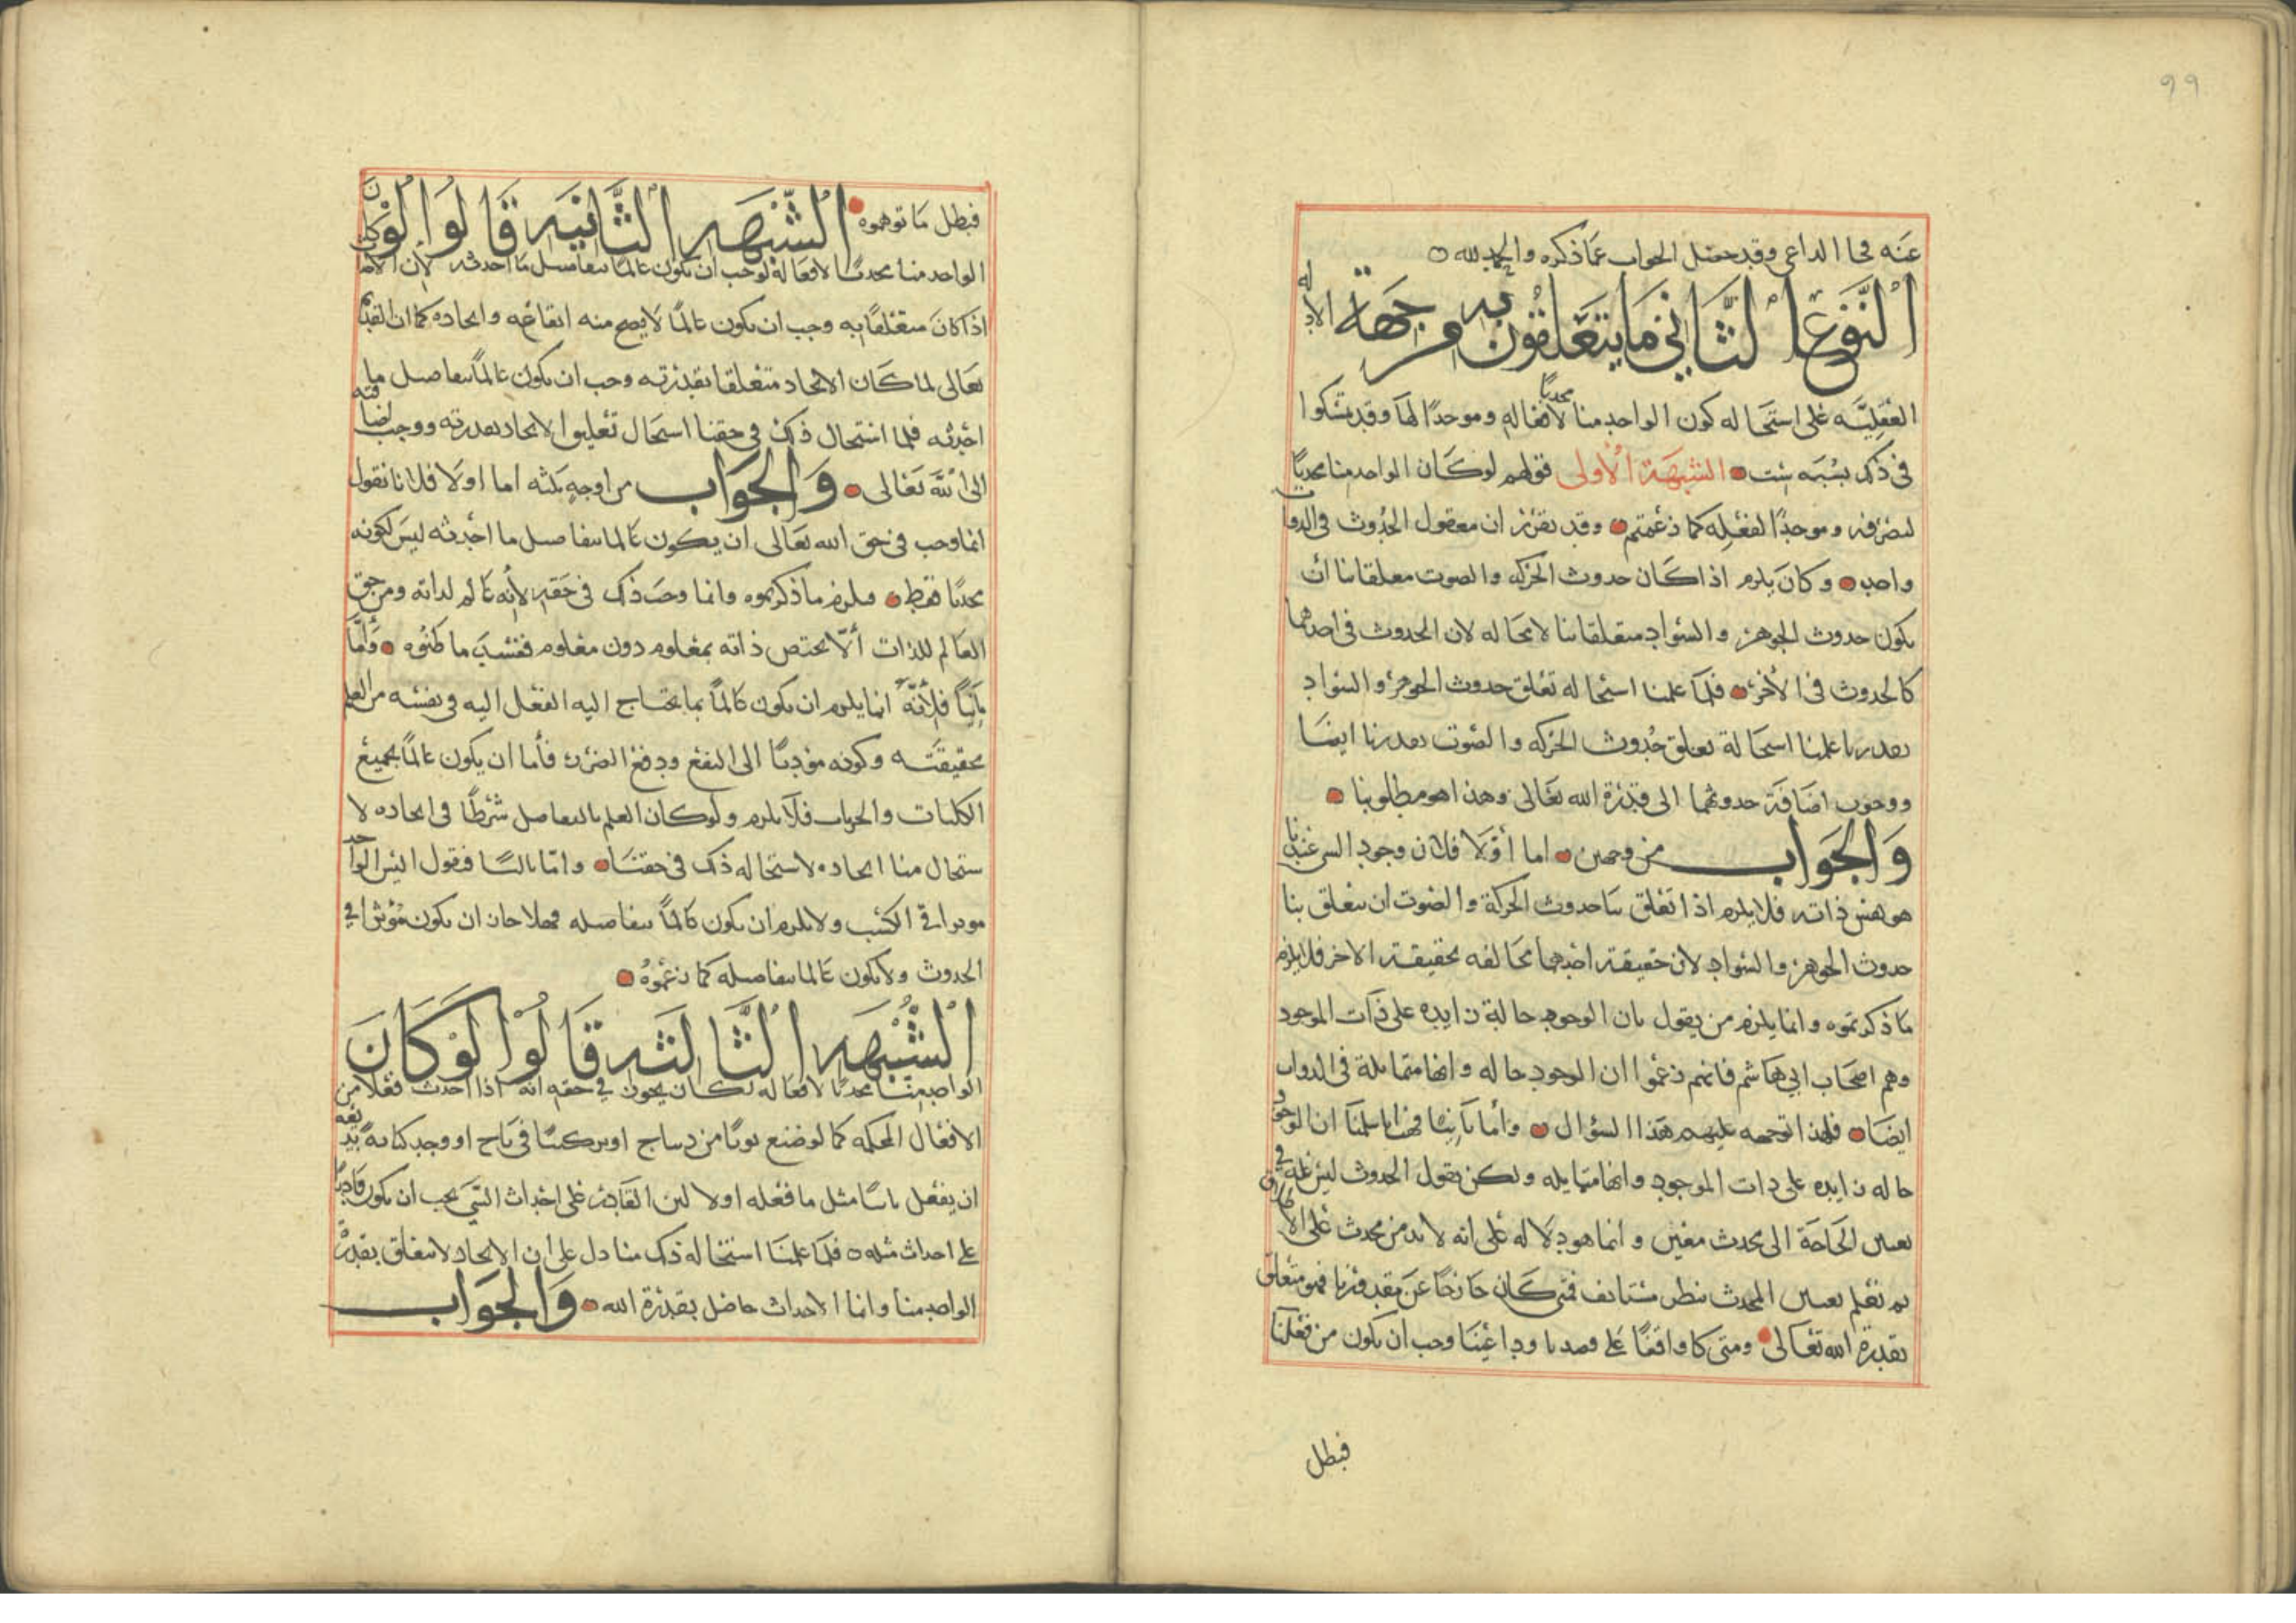 ٩٩
عنه في الداعي وقد حصل الجواب عما ذكره والحمد لله ٥
النوع الثاني ما يتعلقون به من جهة الادله
العقليه على استحاله كون الواحد منا محدثا لافعاله وموجدا لها وقد تمسكوا
في ذلك بشبه ست الشبهة الأولى قولهم لو كان الواحد منا محدثا
لتصرفه وموجدا لفعله كما زعمتم وقد تقرر ان معقول الحدوث في الذوات
واحد وكان يلزم اذا كان حدوث الحركه والصوت معلقا بنا أن
يكون حدوث الجوهر والسواد متعلقا بنا لامحاله لان الحدوث في احدهما
كالحدوث في الأخر فلما علمنا استحاله تعلق حدوث الجوهر والسواد
بقدرنا علمنا استحالة تعلق حدوث الحركه والصوت بقدرنا ايضا
ووجوب اضافة حدوثهما الى قدرة الله تعالى وهذا هو مطلوبنا
والجواب من وجهين اما أولا فلان وجود الشي عندنا
هو نفس ذاته فلا يلزم اذا تعلق بنا حدوث الحركة والصوت ان يتعلق بنا
حدوث الجوهر والسواد لان حقيقة احدهما مخالفه لحقيقة الاخر فلا يلزم
ما ذكرتموه وانما يلزم من يقول بان الوجود حالة زايده على ذات الموجود
وهم اصحاب ابي هاشم فانهم زعموا ان الوجود حاله وانها متماثلة في الذوات
ايضا فلهذا توجه عليهم هذا السؤال وأما ثانيا فهب انا سلمنا ان الوجود
حاله زايده على ذات الموجود وانها متماثله ولكن نقول الحدوث ليس عله في
تعيين الحاجة الى محدث معين وانما هو دلاله على انه لا بد من محدث على الاطلاق
ثم نعلم تعيين المحدث بنظر مستانف فمتى كان خارجا عن مقدورنا فهو متعلق
بقدرة الله تعالى ومتى كان واقفا على قصدنا وداعينا وجب ان يكون من فعلنا
فبطل
فبطل ما توهموه الشبهه الثانيه قالوا لو كان
الواحد منا محدثا لافعاله لوجب ان يكون عالما بتفاصيل ما احدثه لان
اذا كان متعلقا به وجب ان يكون عالما لا يصح منه ايقاعه وايجاده كما ان القديم
تعالى لما كان الايجاد متعلقا بقدرته وجب ان يكون عالما بتفاصيل ما
احدثه فلما استحال ذلك في حقنا استحال تعليق الايجاد بقدرته ووجب اضافته
الى الله تعالى والجواب من اوجه ثلثه اما اولا فلانا نقول
انما وجب في حق الله تعالى ان يكون عالما بتفاصيل ما احدثه ليس لكونه
محدثا فقط فيلزم ما ذكرتموه وانما وجب ذلك في حقه لأنه عالم لذاته ومن حق
العالم للذات ألا يختص ذاته بمعلوم دون معلوم ففسد ما ظنوه وأما
ثانيا فلأنه انما يلزم ان يكون عالما بما يحتاج اليه الفعل اليه في نفسه من العلم
بحقيقته وكونه مؤديا الى النفع ودفع الضرر فأما ان يكون عالما بجميع
الكليات والجزيات فلا يلزم ولو كان العلم بالتفاصيل شرطا في ايجاده لا
ستحال منا ايجاده لاستحاله ذلك في حقنا واما ثالثا فنقول اليس الواحد
موثرا في الكسب ولا يلزم ان يكون عالما بتفاصيله فهلا جاز ان يكون مؤثرا في
الحدوث ولا يكون عالما بتفاصيله كما زعموه
الشبهه الثالثه قالوا لو كان
الواحد منا محدثا لافعاله لكان يجوز في حقه انه اذا احدث فعلا من
الافعال المحكمه كما لو صنع ثوبا من ديباج او وجد كتابة
ان يفعل ثانيا مثل ما فعله اولا لان القادر على احداث الشي يجب ان يكون قادرا
على احداث مثله ٥ فلما علمنا استحاله ذلك منا دل على ان الايجاد لا يتعلق بقدرة
الواحد منا وانما الاحداث حاصل بقدرة الله والجواب